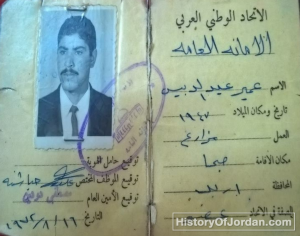 الاتحاد الوطني العربي
الامانه العامه
الاسم عمير عبد
تاريخ ومكان الميلاد ١٩٤٧
العمل مزارع
مكان الاقامة صبحا
المحافظة اربد
الصفة في الاتحاد
توقيع حامل الهوية
توقيع الموظف المختص
توقيع الأمين العام
التاريخ ١٩٧٢/٨/١٦
HistoryOfJordan.com